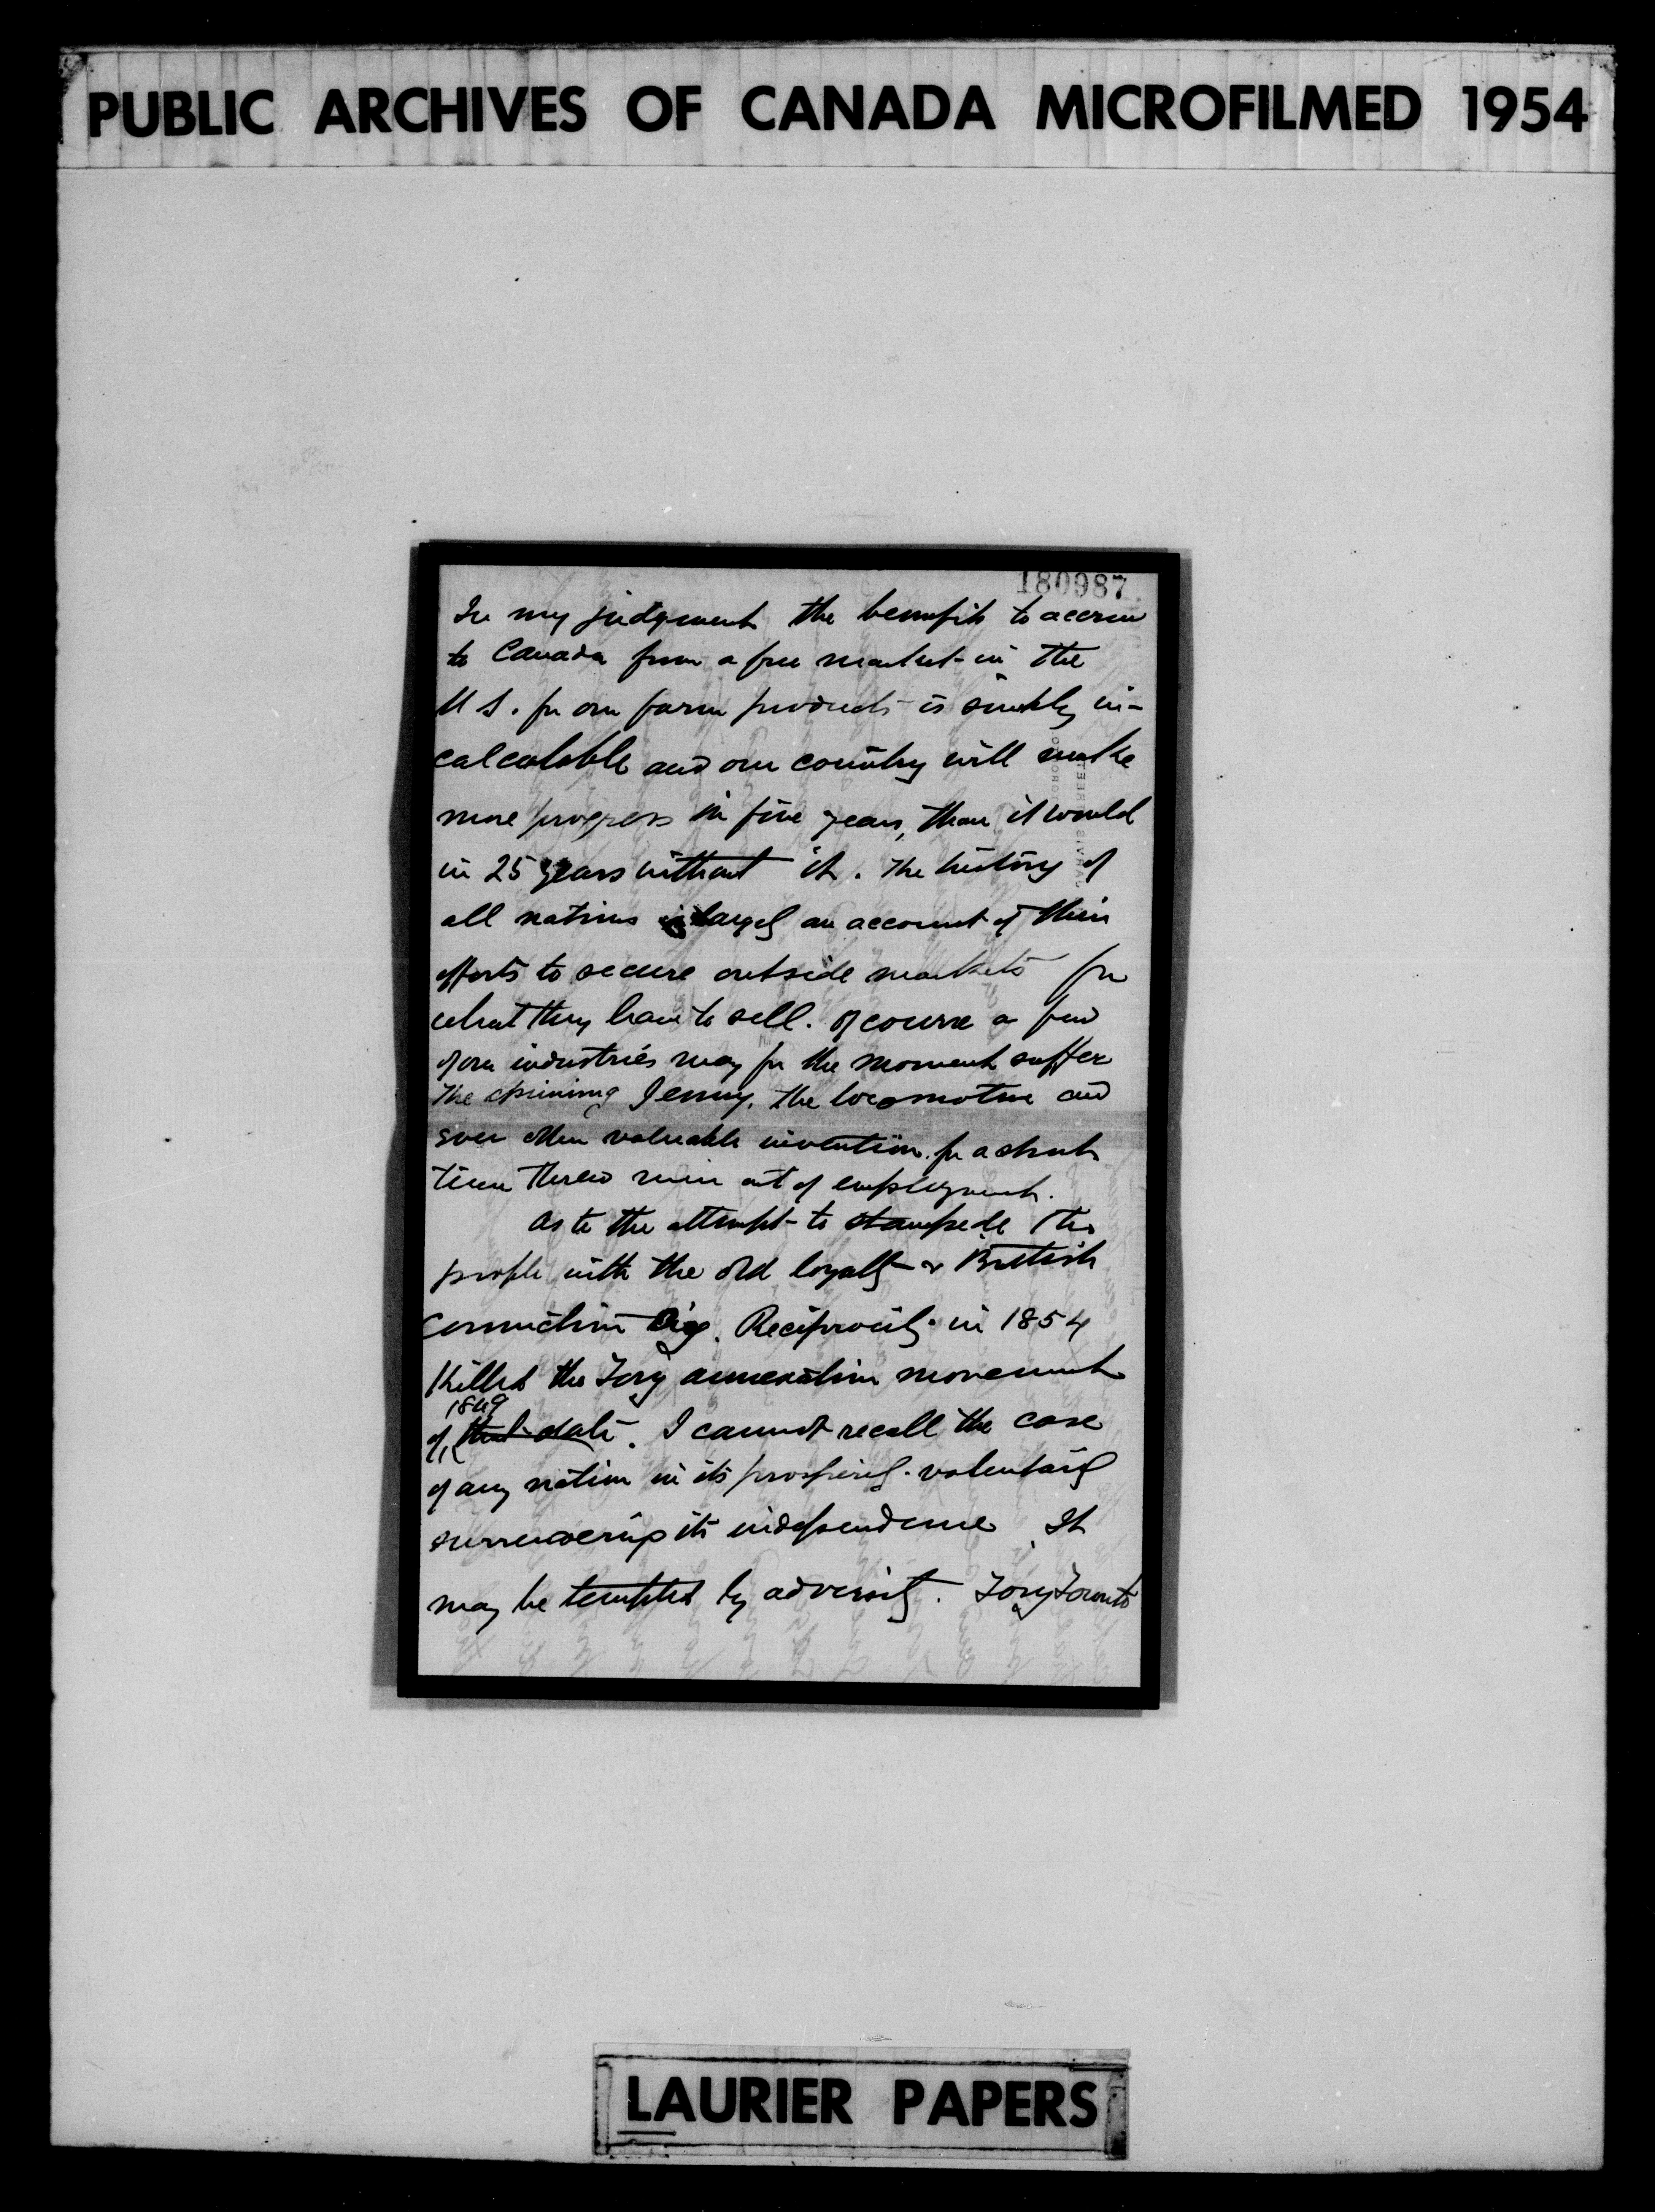 PUBLIC ARCHIVES OF CANADA MICROFILMED 1954
180987
In my judgment the benefits to accrue
to Canada from a free market in the
U S. for our farm products is simply in-
calculable and our country will make
more progress in five years, than it would
in 25 years without it. The history of
all nations is largely an account of their
efforts to secure outside markets for
what they have to sell. Of course a few
of our industries may for the moment suffer
The spinning Jenny, the locomotive and
ever other valuable invention for a short
time threw men out of employment.
As to the attempt to stampede the
people with the old loyalty & British
connection cry. Reciprocity in 1854
killed the Tory annexation movement
1849
of that date. I cannot recall the case
of any nation in its prosperity voluntarily
surrendering its independence. It
may be tempted by adversity. Tory Toronto
LAURIER PAPERS